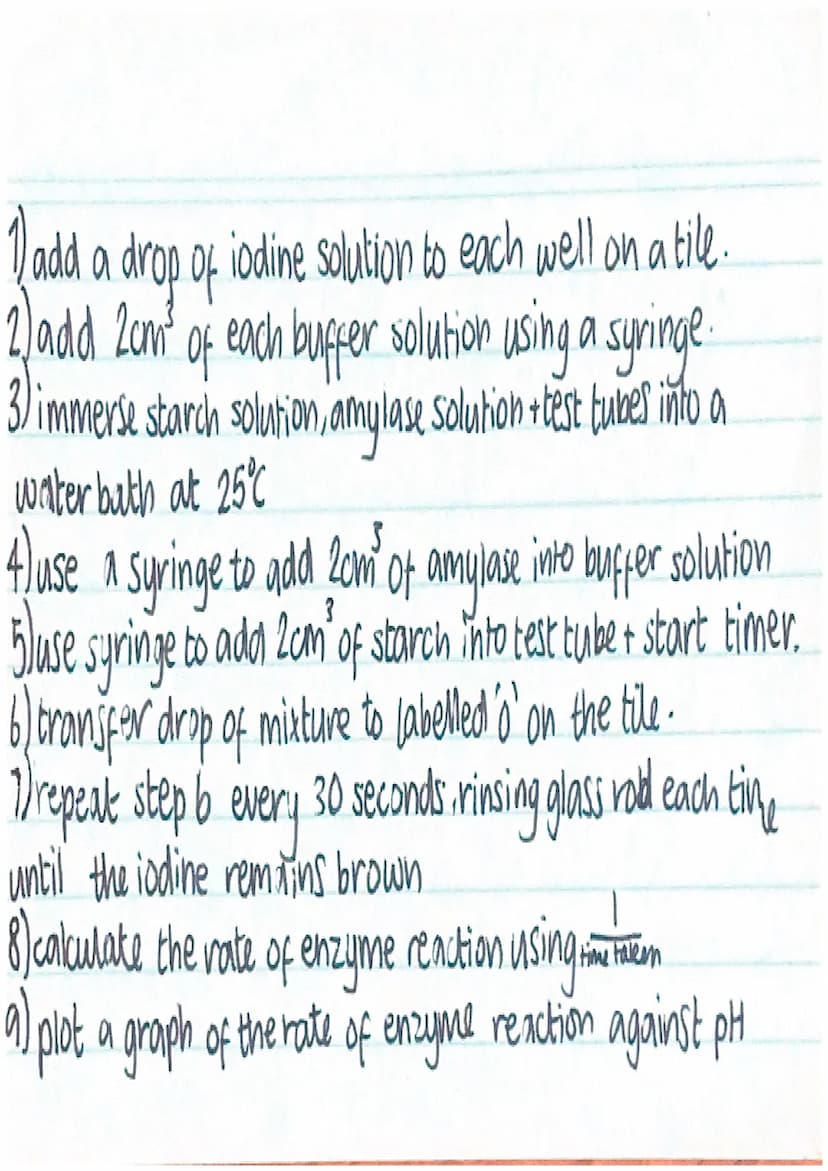 1) add a drop of iodine solution to each well on a tile.
2) add 2cm³ of each buffer solution using a syringe.
3) immerse starch solution, amylase solution + test tubes into a
water bath at 25°C
4) use a syringe to add 2cm³ of amylase into buffer solution
5) use syringe to add 2cm³ of starch into test tube + start timer.
6) transfer drop of mixture to labelled 'o' on the tile.
7) repeat step 6 every 30 seconds, rinsing glass rod each time
until the iodine remains brown
8) calculate the rate of enzyme reaction using 1/time taken
9) plot a graph of the rate of enzyme reaction against pH